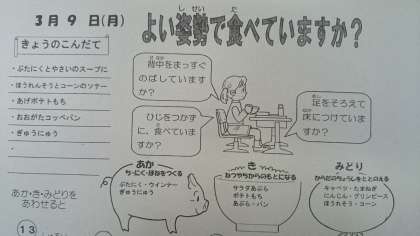 3月 9 日(月)
よい姿勢で食べていますか？
しせい
た
きょうのこんだて
・ぶたにくとやさいのスープに
・ほうれんそうとコーンのソテー
・あげポテトもち
・おおがたコッペパン
・ぎゅうにゅう
背中をまっすぐ
のばしています
か？
ひじをつかず
に、食べていま
すか？
足をそろえて
床につけています
か？
あか
ち・にく・ほねをつくる
ぶたにく・ウインナー
ぎゅうにゅう
き
ねつやちからのもとになる
サラダあぶら
ポテトもち
あぶら・パン
みどり
からだのちょうしをととのえる
キャベツ・たまねぎ
にんじん・グリンピース
ほうれんそう・コーン
あか・き・みどりを
あわせると
13